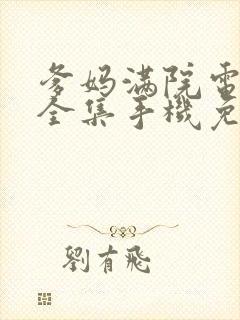 爹妈满院電
全集手機免
劉有飛